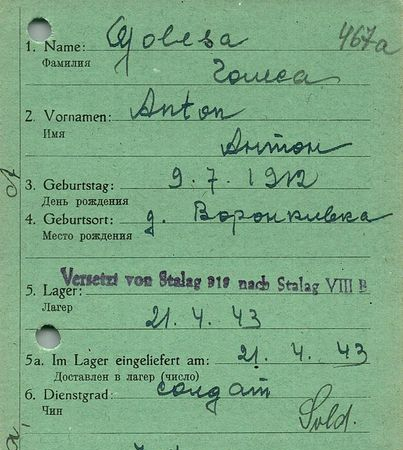 467a
1. Name:
Фамилия
2. Vornamen: Anton
Имя Антон
3. Geburtstag: 9. 7. 1912
День рождения
4. Geburtsort: д. Воронкивка
Место рождения
Versetzt von Stalag 319 nach Stalag VIII B
5. Lager:
Лагер 21. 4. 43
5a. Im Lager eingeliefert am: 21. 4. 43
Доставлен в лагер (число)
6. Dienstgrad: солдат
Чин Sold.